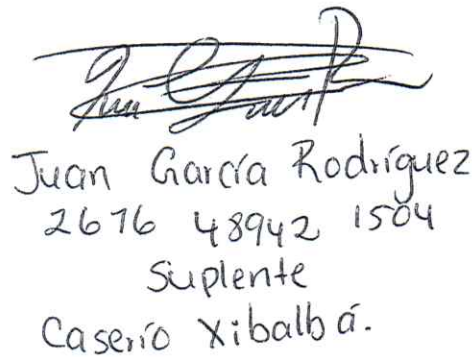 Juan García Rodríguez
2676 48942 1504
Suplente
Caserío Xibalbá.